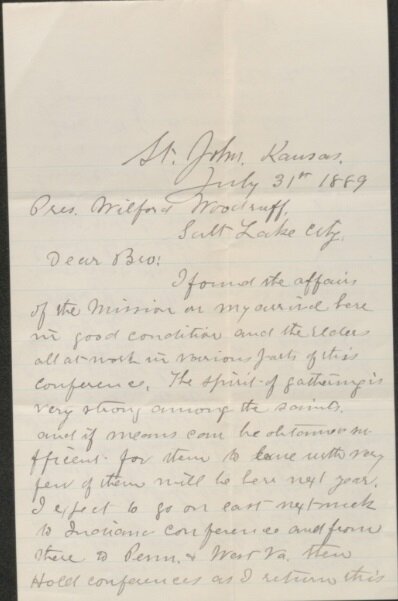 St. John, Kansas.
July 31st 1889
Pres. Wilford Woodruff,
Salt Lake City.
Dear Bro:
I found the affairs
of the Mission on my arrival here
in good condition and the Elders
all at work in various parts of this
conference. The spirit of gathering is
very strong among the saints,
and if means can be obtained su-
fficent for them to leave with very
few of them will be here next year.
I expect to go on east next week
to Indiana conference and from
there to Penn. & West Va. then
Hold conferences as I return this